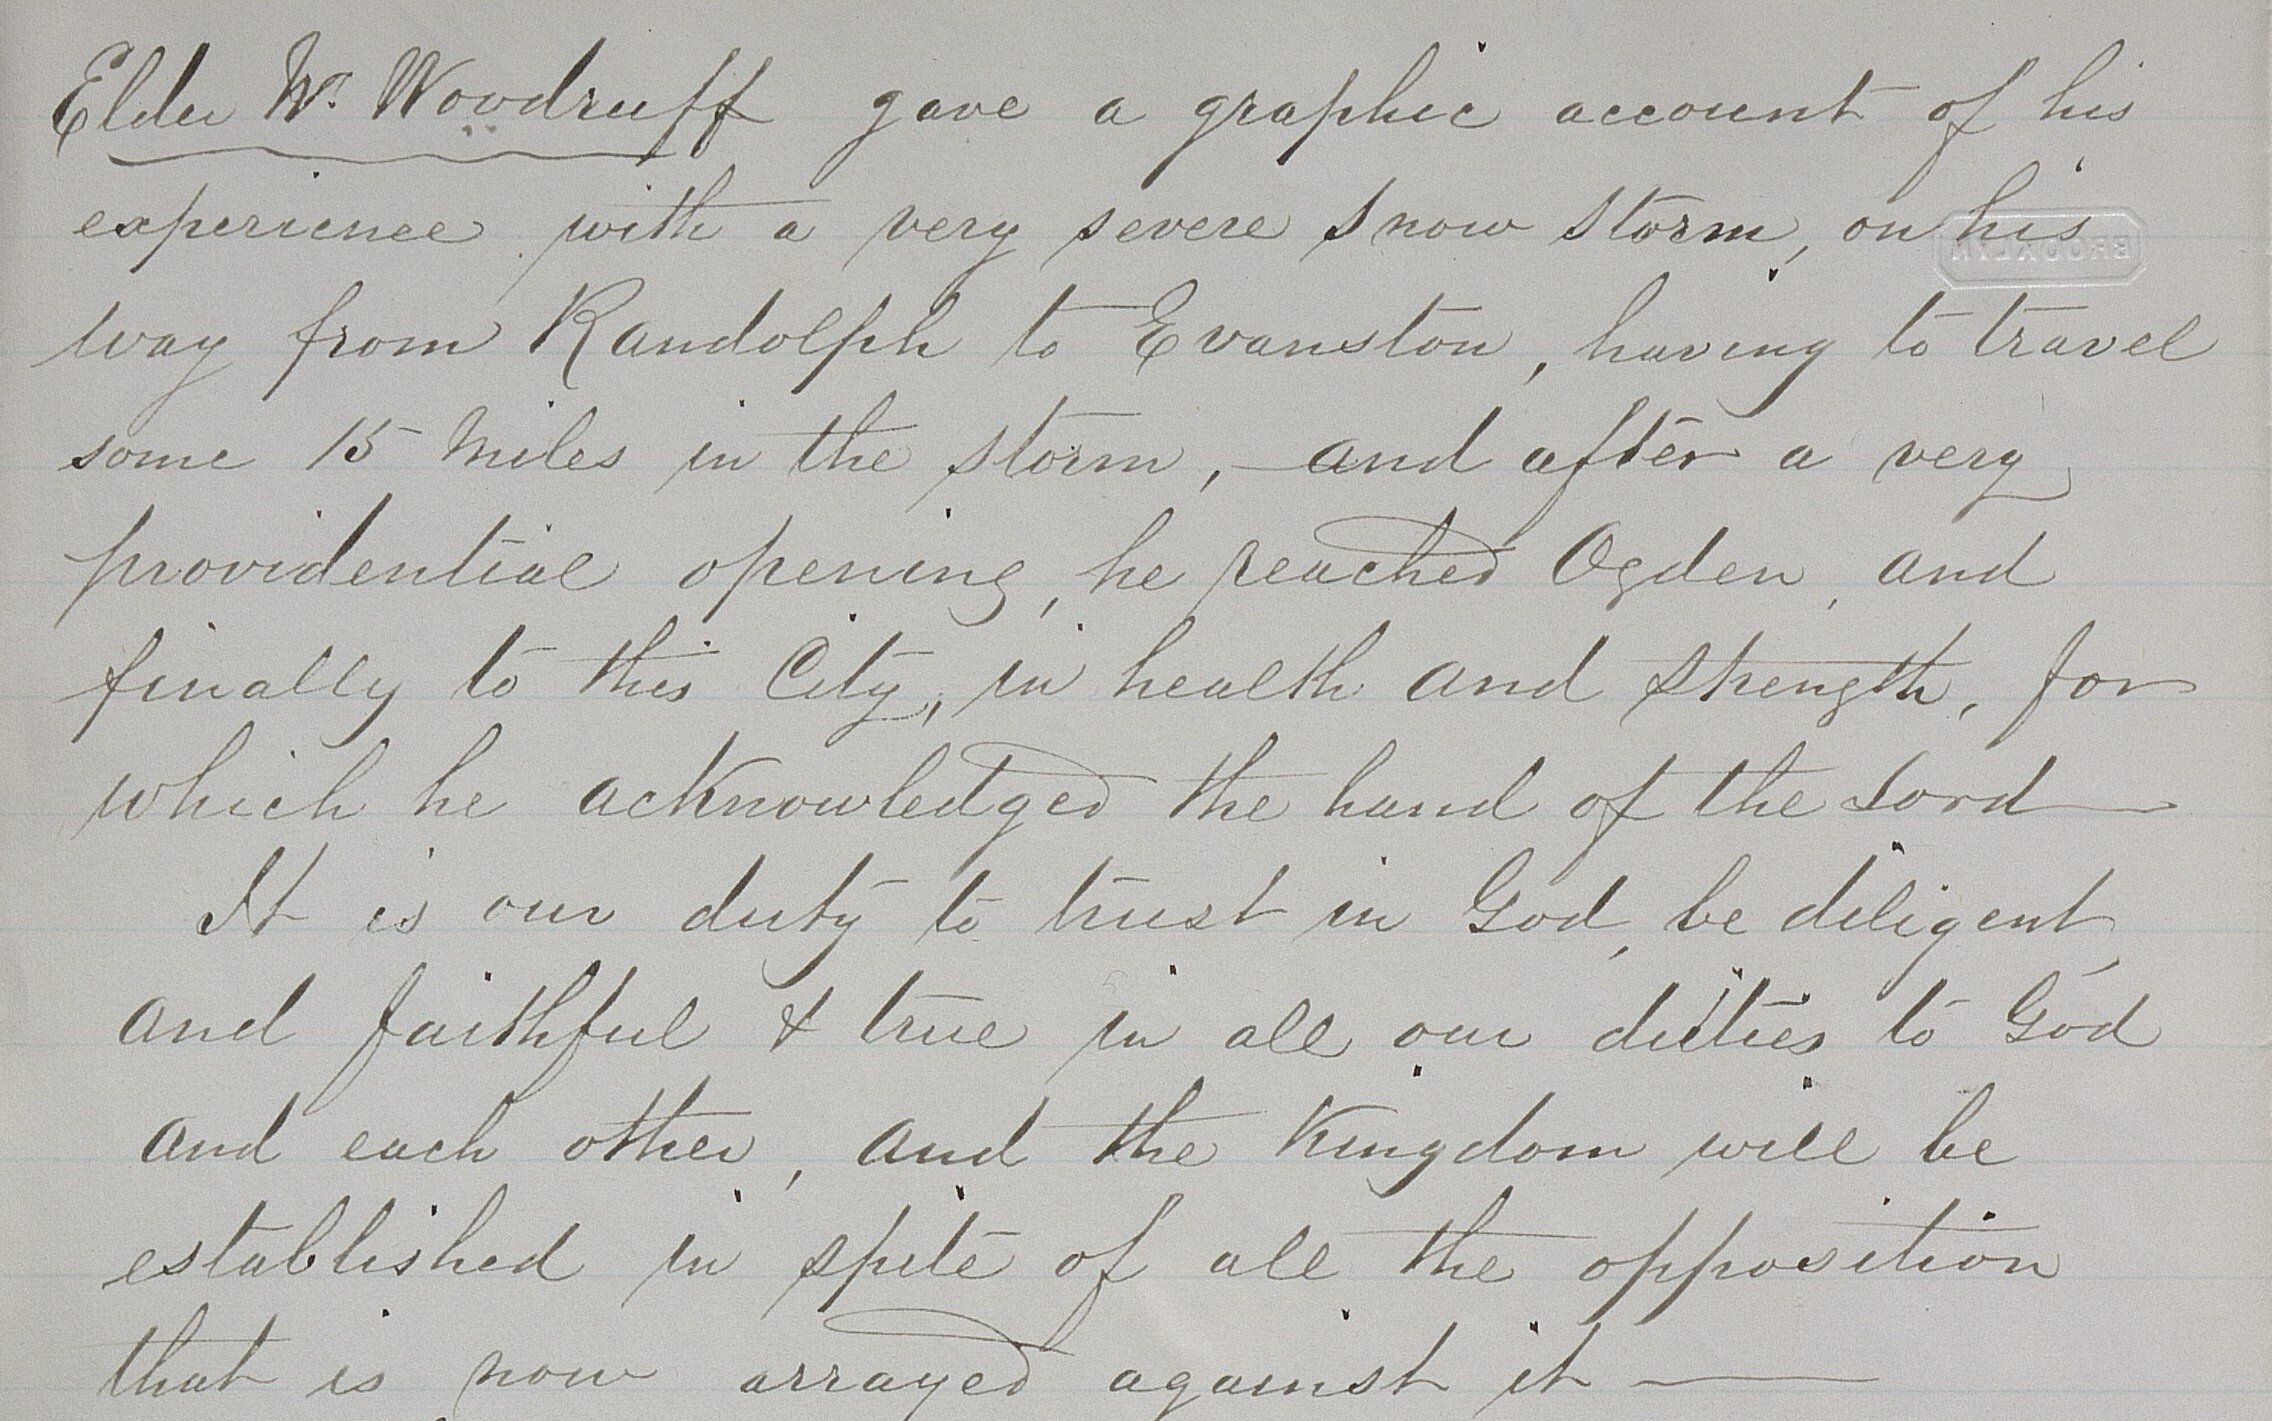 Elder W. Woodruff gave a graphic account of his
experience with a very severe snow storm, on his
BROOKLYN
way from Randolph to Evanston, having to travel
some 15 Miles in the storm, - and after a very
providential opening, he reached Ogden, and
finally to this City, in health and strength, for
which he acknowledged the hand of the Lord —
It is our duty to trust in God, be diligent,
and faithful & true in all our duties to God
and each other, and the Kingdom will be
established in spite of all the opposition
that is now arrayed against it —